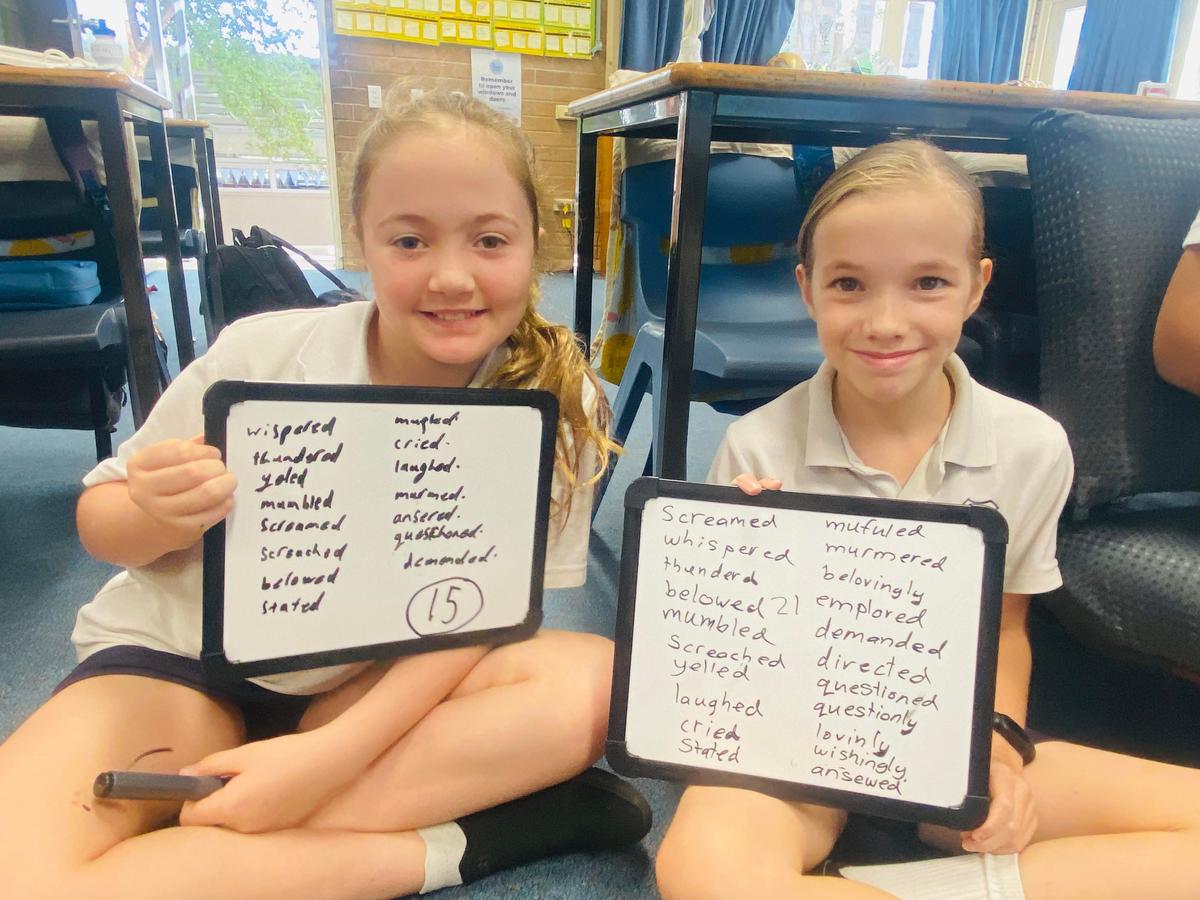 Remember
to open your
windows and
doors
wispered
thundered
yeled
mumbled
Screamed
screached
belowed
stated
mufled
cried.
laughed.
murmed.
ansered.
questhoned.
demended.
15
Screamed
whispered
thunderd
belowed 21
mumbled
Screached
yelled
laughed
cried
Stated
mufuled
murmered
belovingly
emplored
demanded
directed
questioned
questionly
lovinly
wishingly
ansewed